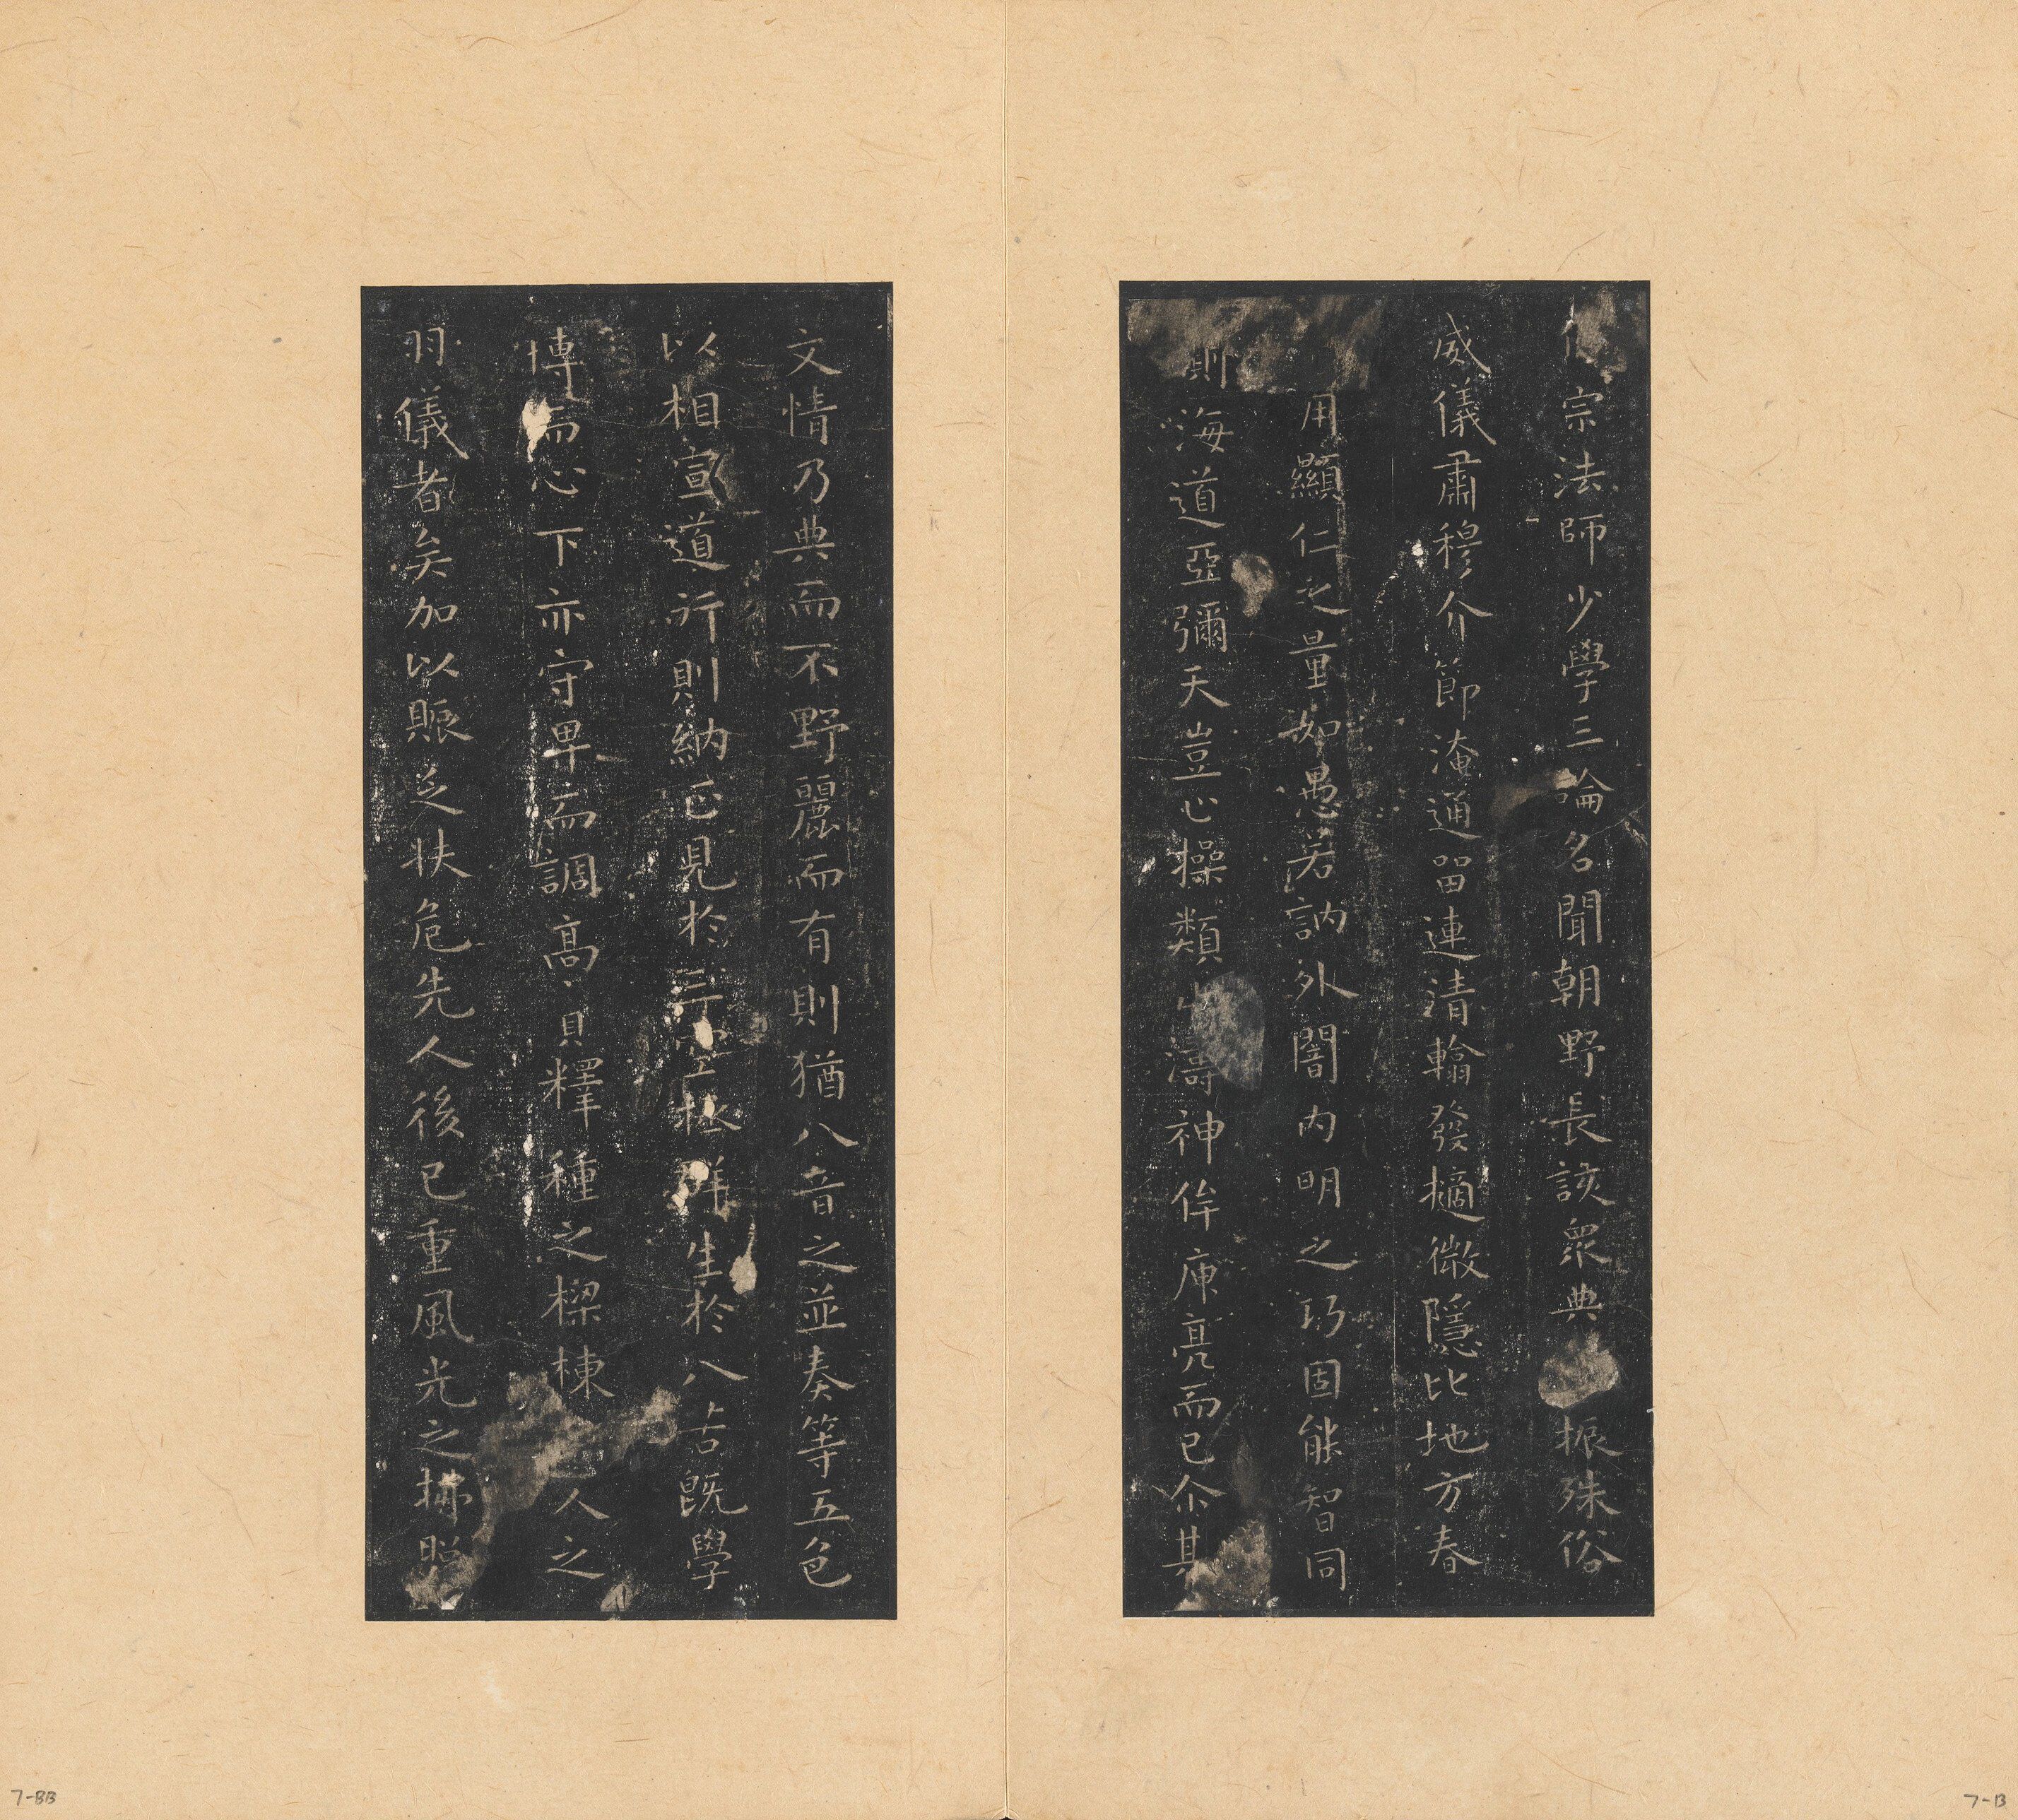 宗法師少學三論名聞朝野長該衆典振殊俗
威儀肅穆介節淹通留連清翰發擿微隱比地方春
用顯仁之量如愚若訥外闇内明之巧固能智同
則海道亞彌天豈止操類山濤神侔庾亮而已介其
文情乃典而不野麗而有則猶八音之並奏等五色
以相宣道行則納正見於三空拯群生於八苦既學
博而心下亦守卑而調高寔釋種之樑棟人之
羽儀者矣加以賑乏扶危先人後已重風光之拂照
7-BB
7-B